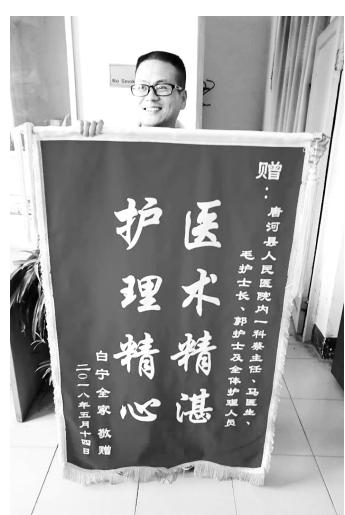 No Smok
赠：
唐河县人民医院内一科蔡主任、马医生、
毛护士长、郭护士及全体护理人员
医术精湛
护理精心
白宁全家 敬赠
二〇一八年五月十四日